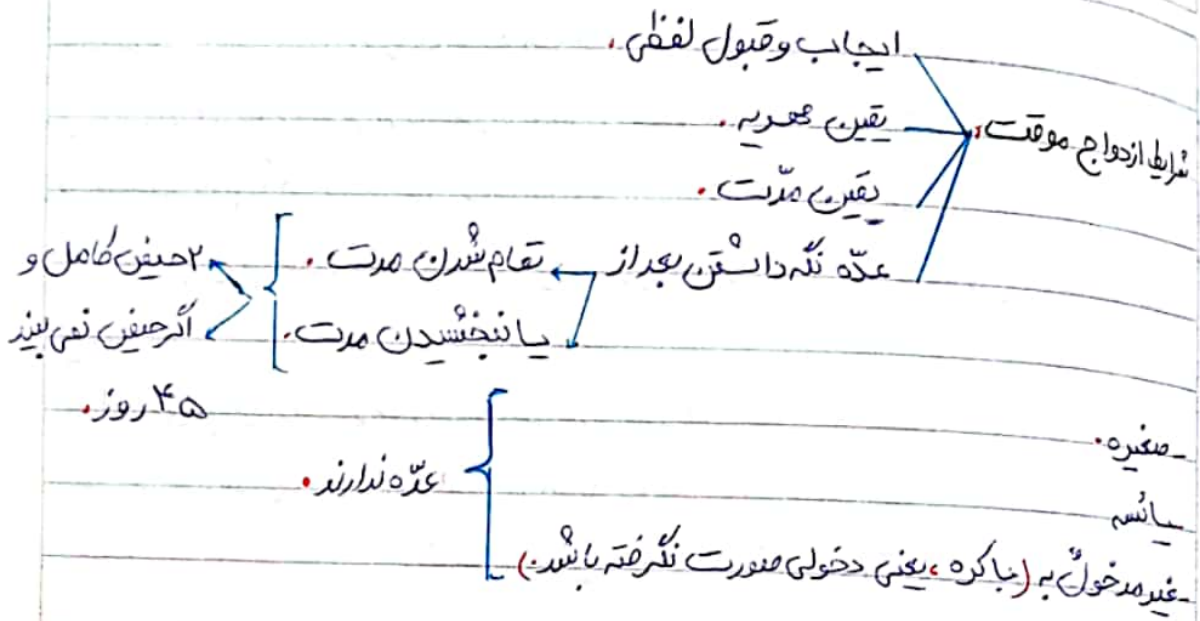 شرایط ازدواج موقت:
ایجاب و قبول لفظی.
یقین مهریه.
یقین مدّت.
عدّه نگه داشتن بعد از
تمام شدن مدت.
یا نبخشیدن مدت.
۲ حیض کامل و
اگر حیض نمی بیند
۴۵ روز.
-صغیره.
-یائسه
-غیر مدخولٌ به (باکره، یعنی دخولی صورت نگرفته باشد.)
عدّه ندارند.